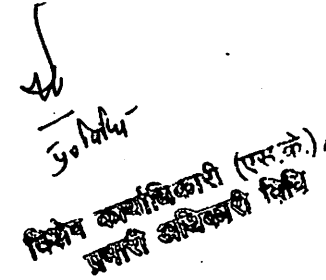 प्र० विधि
विशेष कार्याधिकारी (एस.के.)
प्रभारी अधिकारी विधि